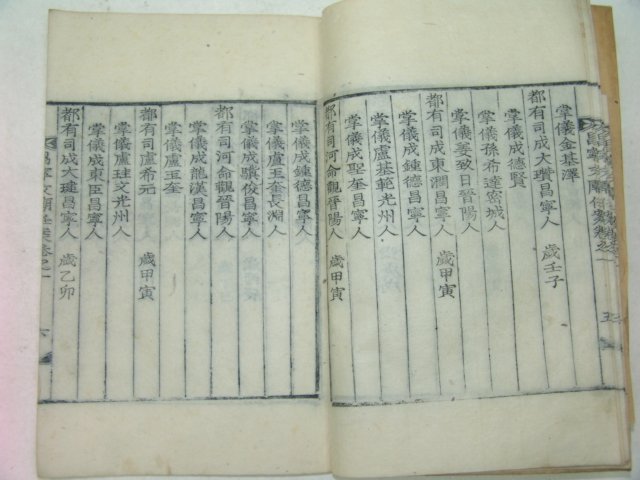 掌儀金基澤
都有司成大瓚昌寧人 歲壬子
掌儀成德賢
掌儀孫希達密城人
掌儀姜致日晉陽人
都有司成東潤昌寧人 歲甲寅
掌儀成鍾德昌寧人
掌儀盧基範光州人
掌儀成聖奎昌寧人
都有司河命觀晉陽人 歲甲寅
掌儀成鍾德昌寧人
掌儀盧玉奎長淵人
掌儀成驥俊昌寧人
都有司河命觀晉陽人 歲甲寅
掌儀盧玉奎
掌儀成龍漢昌寧人
都有司盧希元 歲甲寅
掌儀盧珪文光州人
掌儀成東臣昌寧人
都有司成大璉昌寧人 歲乙卯
六